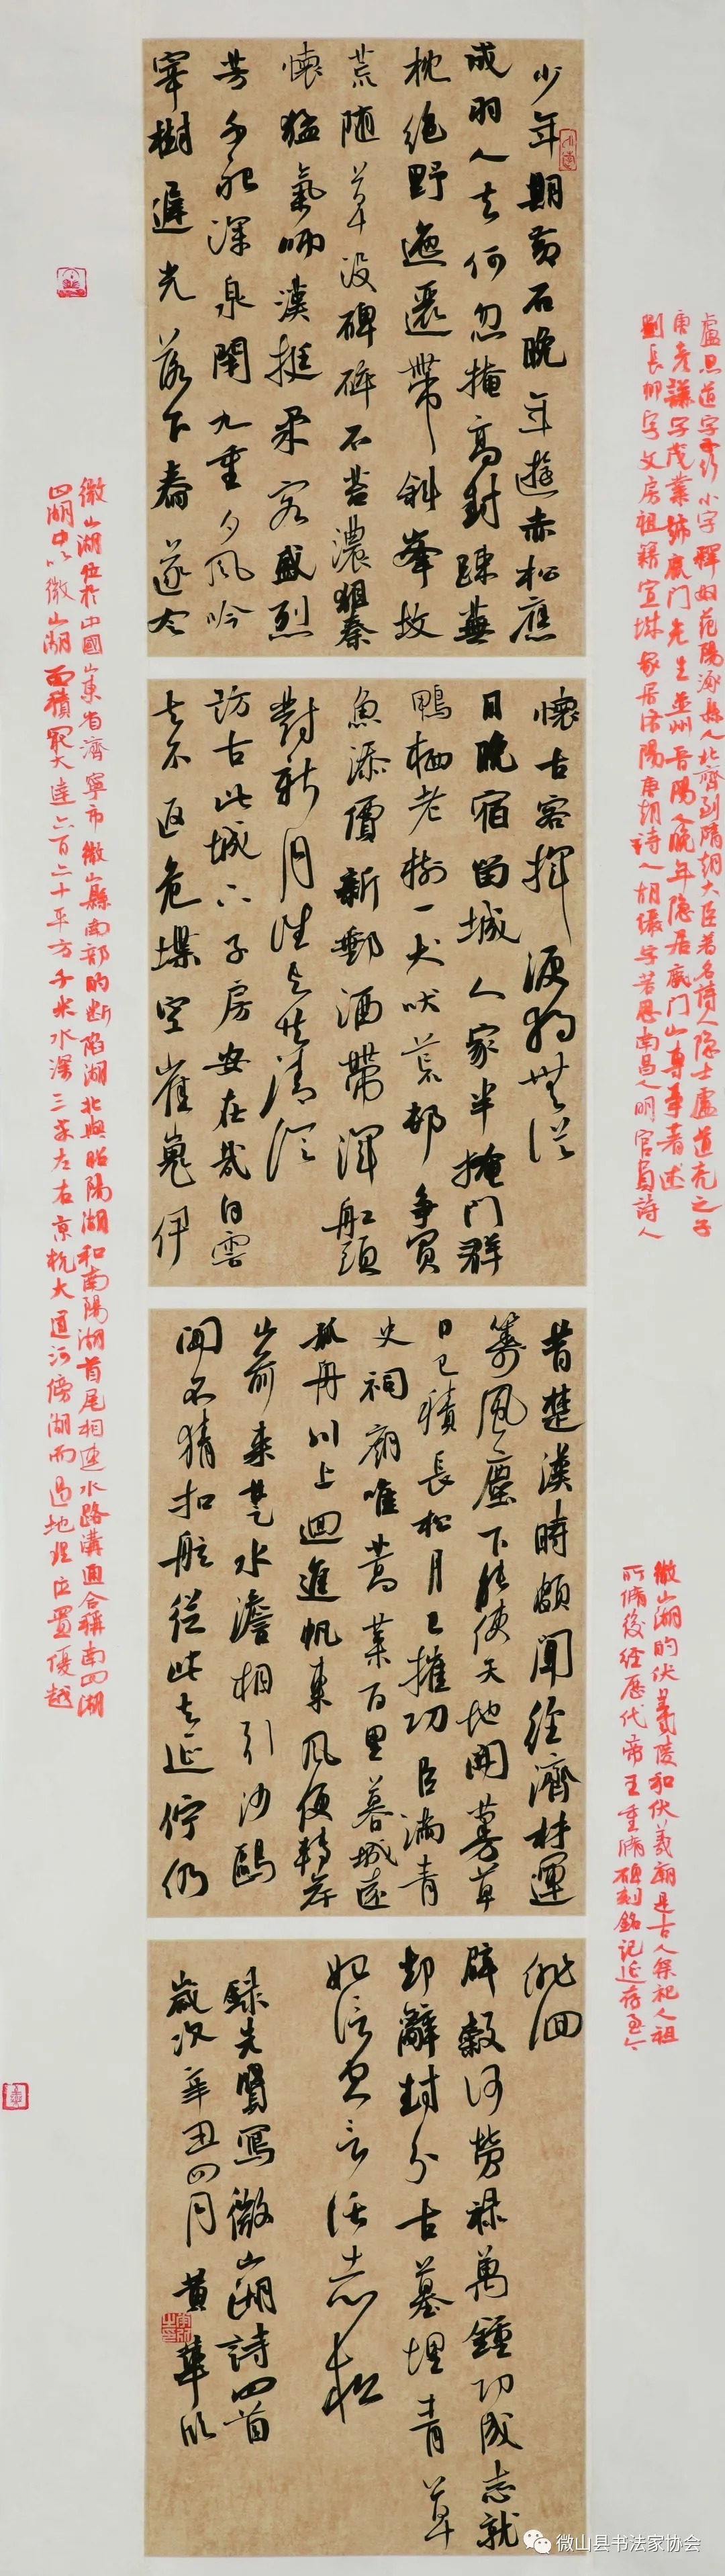 少年期黄石晚年遊赤松應
成羽人去何忽掩高封踈蕪
枕絶野迤邐帶斜峯坟
荒随草没碑碎石苔濃狙秦
懷猛氣師漢挺柔容盛烈
芳千祀深泉閉九重夕風吟
宰樹遲光落下舂遂令
懷古客揮淚獨無從
日晚宿留城人家半掩門群
鴨栖老樹一犬吠荒邨争買
魚添價新郵酒帶渾船頭
對新月誰與共清論
訪古此城下子房安在哉白雲
去不返危堞空崔嵬伊
昔楚漢時頗聞經濟材運
籌風塵下能使天地開蔓草
日已積長松月已摧功臣滿青
史祠廟唯蒿萊百里暮城遠
孤舟川上迴進帆東風便轉岸
山前來楚水澹相引沙鷗
閒不猜扣舷從此去延佇仍
徘徊
辟穀何勞禄萬鍾功成志就
却辭封分古墓埋青草
松
録先賢寫微山湖詩四首
歲次辛丑四月黄華
盧思道字子行小字釋奴范陽涿縣人北齊到隋朝大臣著名詩人隱士盧道亮之子
唐彦謙字茂業號鹿門先生并州晋陽人晚年隐居鹿門山專事著述
劉長卿字文房祖籍宣城家居洛陽唐朝詩人胡儼字若思南昌人明官員詩人
微山湖的伏羲陵和伏羲廟是古人祭祀人祖
所脩後經歷代帝王重脩碑刻銘記延存至今
微山湖位於中國山東省濟寧市微山縣南部的断陷湖北與昭陽湖和南陽湖首尾相連水路溝通合稱南四湖
四湖中以微山湖面積最大達六百六十平方千米水深三米左右京杭大運河傍湖而過地理位置優越
微山县书法家协会